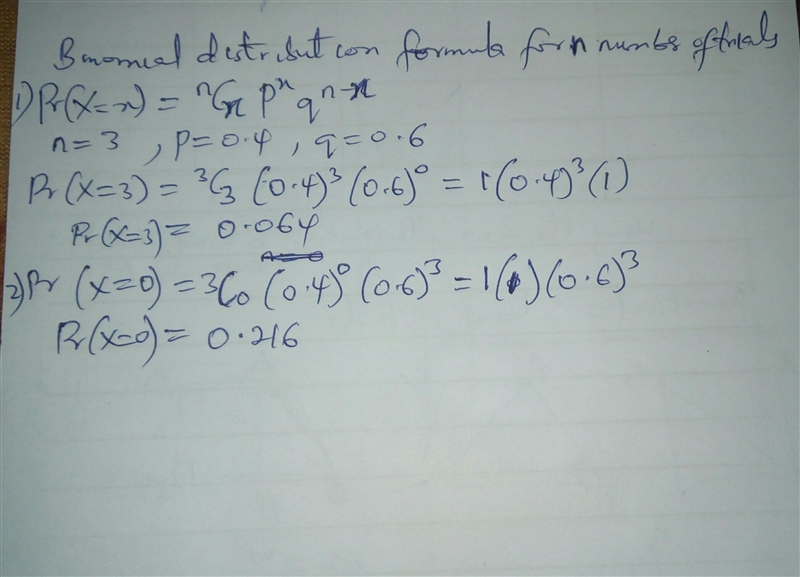 Binomial distribution formula for n number of trials
1) Pr(X=x) = ⁿCₓ pˣ qⁿ⁻ˣ
n=3 , p=0.4 , q=0.6
Pr(X=3) = ³C₃ (0.4)³ (0.6)⁰ = 1(0.4)³(1)
Pr(X=3) = 0.064
2) Pr (X=0) = ³C₀ (0.4)⁰ (0.6)³ = 1(1)(0.6)³
Pr(X=0) = 0.216